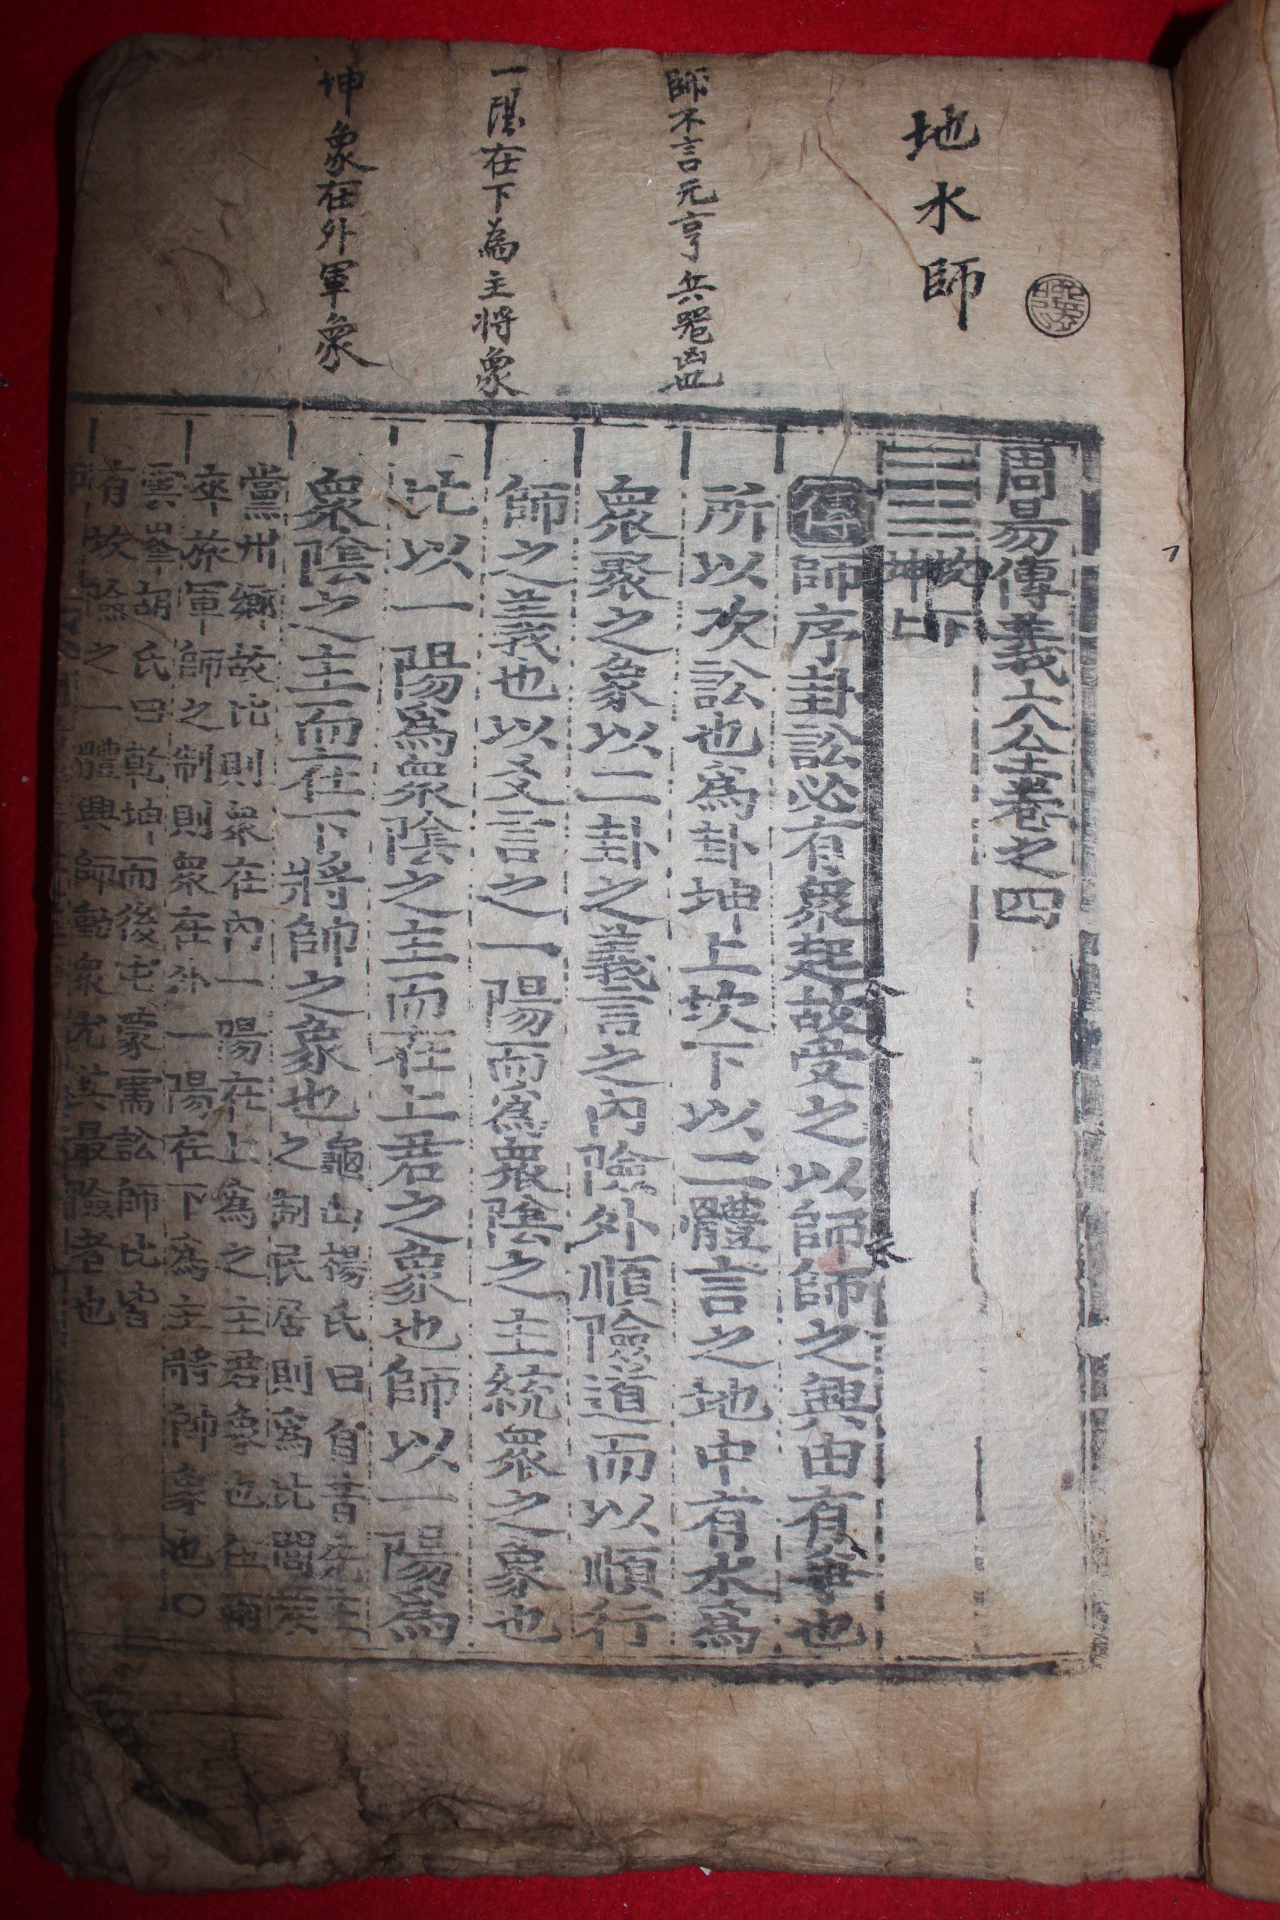 地水師
師不言元亨兵器凶也
一陽在下為主將象
坤象在外軍象
周易傳義大全卷之四
坎下
坤上
傳師序卦訟必有衆起故受之以師師之興由有爭也
所以次訟也爲卦坤上坎下以二體言之地中有水爲
衆聚之象以二卦之義言之內險外順險道而以順行
師之義也以爻言之一陽而爲衆陰之主統衆之象也
比以一陽爲衆陰之主而在上君之象也師以一陽爲
衆陰之主而在下將帥之象也
龜山楊氏曰自昔先王
之制民居則爲比閭族
黨州鄉故比則衆在內一陽在上爲之主君象也在兩
卒旅軍師之制則衆在外一陽在下爲主將帥象也○
雲峯胡氏曰乾坤而後屯蒙需訟師比皆
有坎險之一體興師動衆尤其最險者也